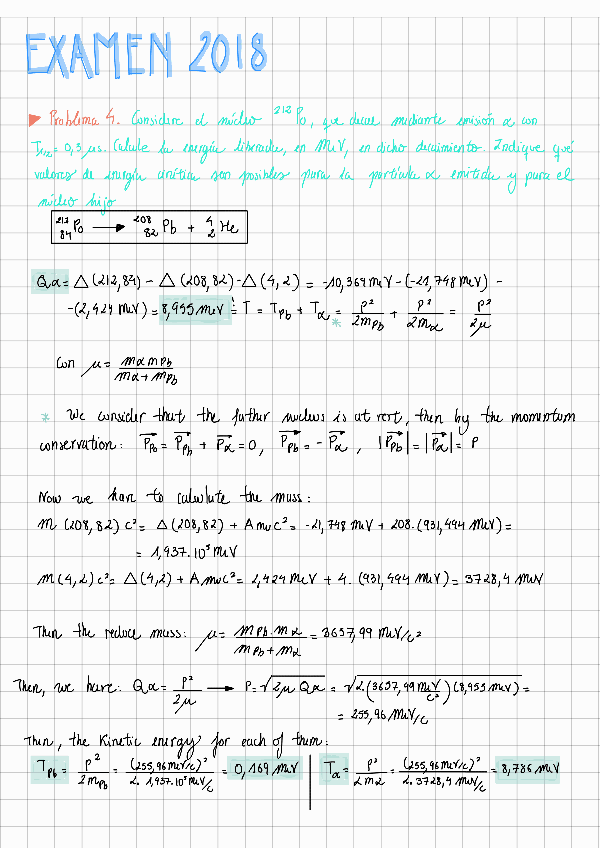 EXAMEN 2018
► Problema 4. Considere el núcleo ²¹²Po, que decae mediante emisión α con
T₁/₂ = 0,3 μs. Calcule la energía liberada, en MeV, en dicho decaimiento. Indique qué
valores de energía cinética son posibles para la partícula α emitida y para el
núcleo hijo
²¹²₈₄Po → ²⁰⁸₈₂Pb + ⁴₂He
Qα = △(212,84) - △(208,82) - △(4,2) = -10,369 MeV - (-21,748 MeV) -
-(2,424 MeV) = 8,955 MeV = T = T_Pb + T_α =* P²/2m_Pb + P²/2m_α = P²/2μ
Con μ = mα m_Pb / (mα + m_Pb)
* We consider that the father nucleus is at rest, then by the momentum
conservation: P⃗_Po = P⃗_Pb + P⃗_α = 0, P⃗_Pb = - P⃗_α, |P⃗_Pb| = |P⃗_α| = P
Now we have to calculate the mass:
m (208,82) c² = △(208,82) + A muc² = -21,748 MeV + 208·(931,494 MeV) =
= 1,937·10⁵ MeV
m(4,2)c² = △(4,2) + A muc² = 2,424 MeV + 4·(931,494 MeV) = 3728,4 MeV
Then the reduce mass: μ = m_Pb·m_α / (m_Pb + m_α) = 3657,99 MeV/c²
Then, we have: Qα = P²/2μ → P = √(2μ Qα) = √(2·(3657,99 MeV/c²)(8,955 MeV)) =
= 255,96 MeV/c
Then, the Kinetic energy for each of them:
T_Pb = P²/2m_Pb = (255,96 MeV/c)²/(2·1,937·10⁵ MeV/c) = 0,169 MeV | T_α = P²/2mα = (255,96 MeV/c)²/(2·3728,4 MeV/c) = 8,786 MeV